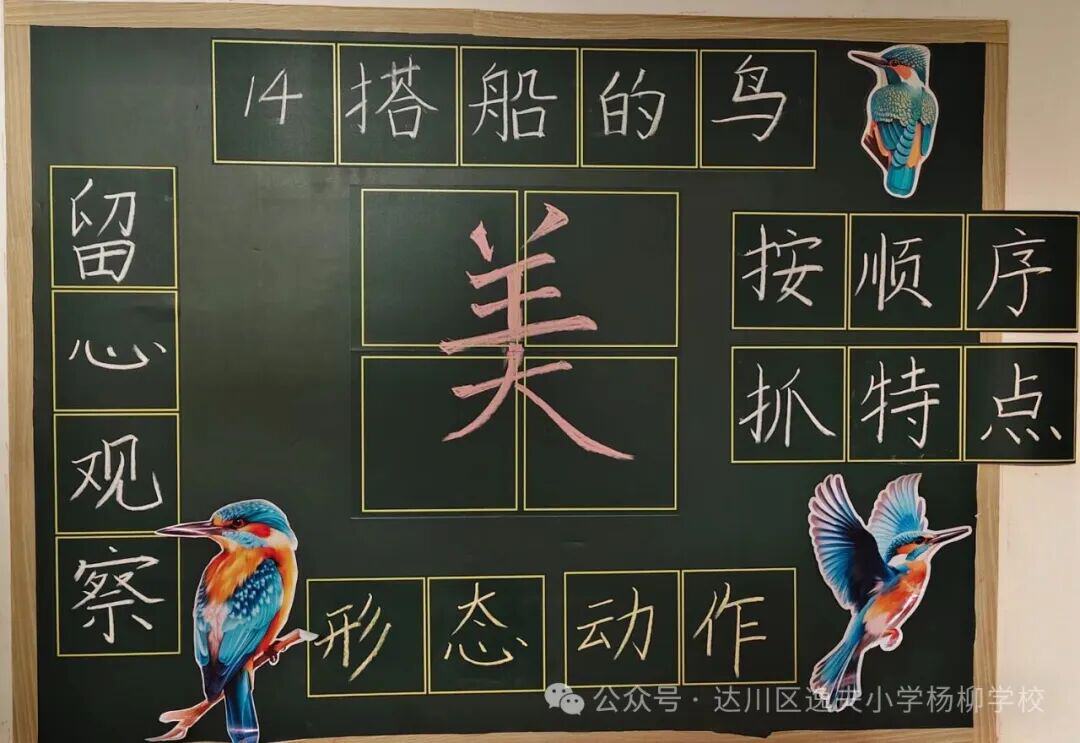 14搭船的鸟
留心观察
美
按顺序
抓特点
形态 动作
公众号·达川区逸夫小学杨柳学校